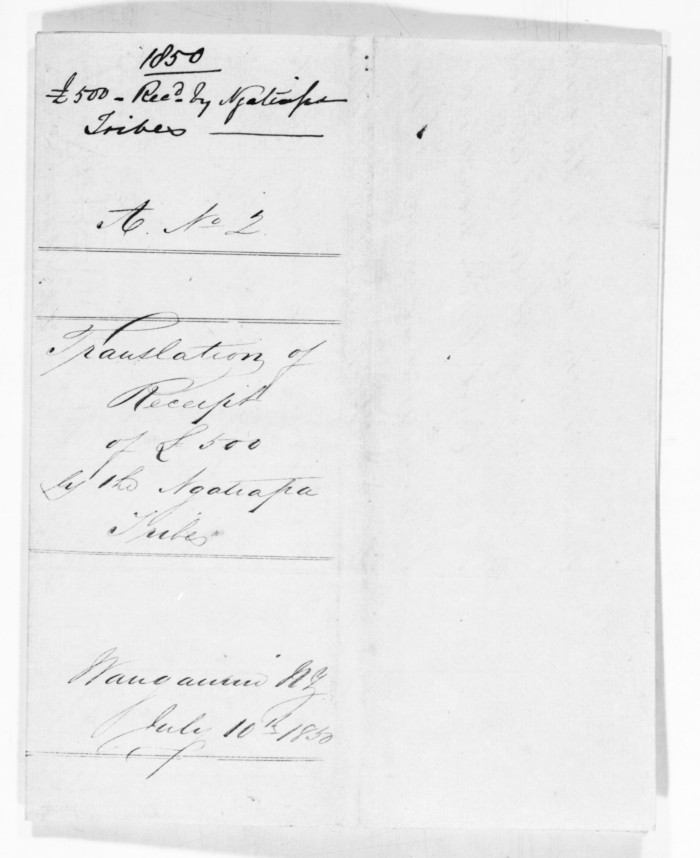 1850
£500 - Recd. by Ngatiapa
Tribes
A. No 2.
Translation of
Receipt
of £500
by the Ngatiapa
Tribes
Wanganui NZ
July 10th 1850